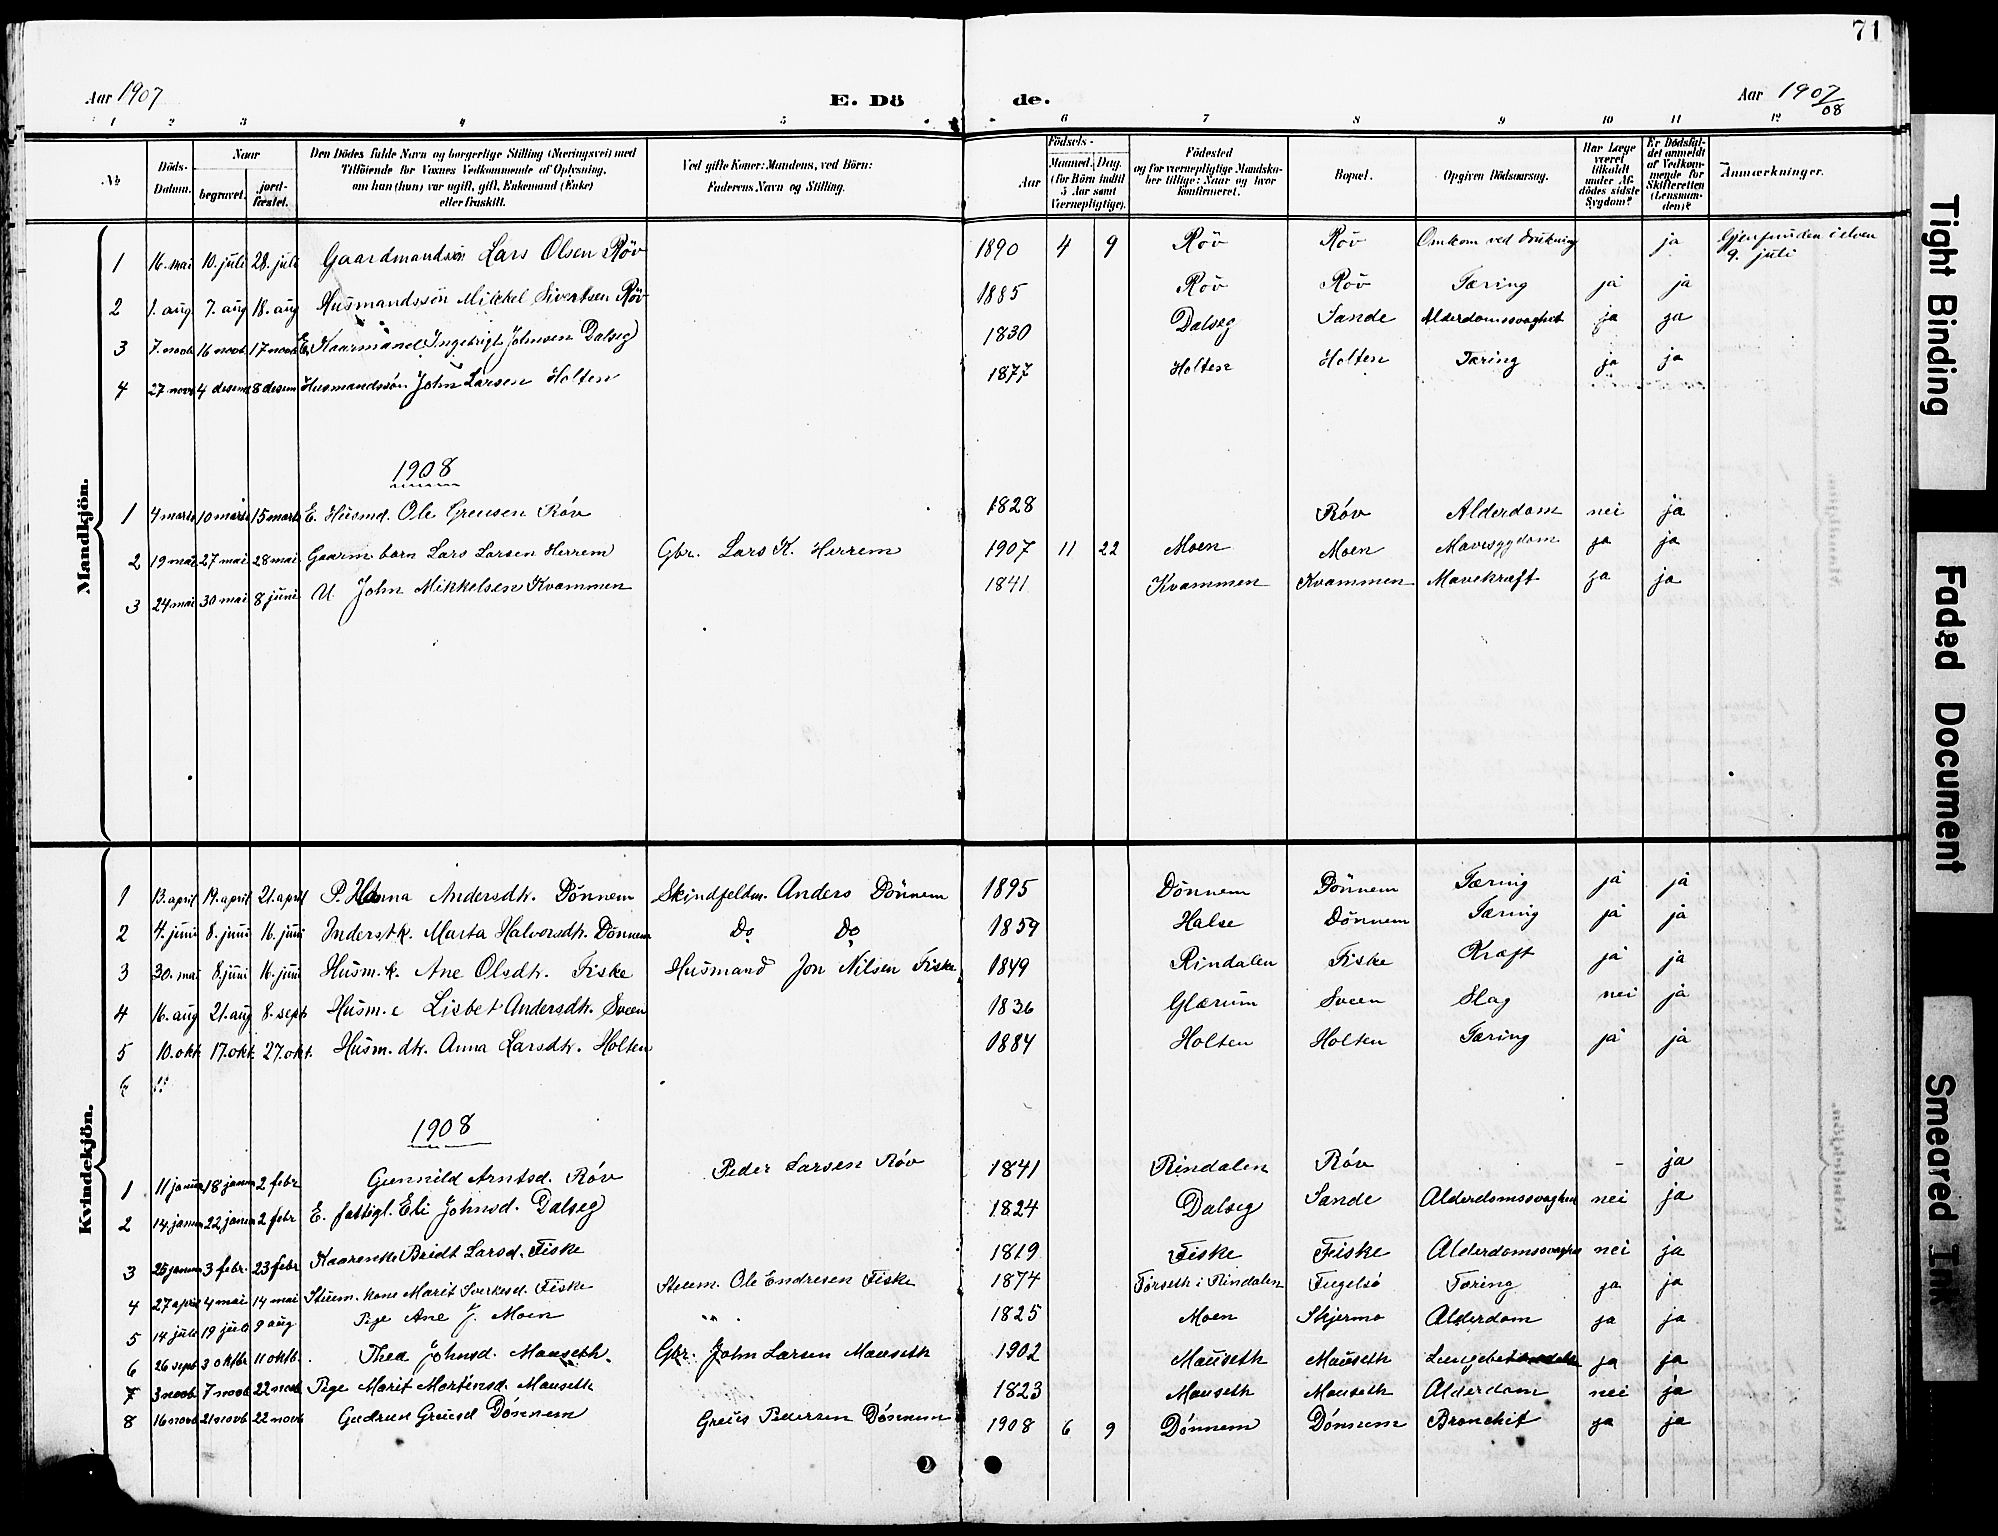 71
Aar 1907 E. Dö de. Aar 1907/08
1 2 3 4 5 6 7 8 9 10 11 12
№ Döds-Datum. Naar begravet. jord-fæstet. Den Dödes fulde Navn og borgerlige Stilling (Næringsvei) med Tilföiende for Voxnes Vedkommende af Oplysning, om han (hun) var ugift, gift, Enkemand (Enke) eller fraskilt. Ved gifte Koner: Mandens, ved Börn: Faderens Navn og Stilling. Födsels- Aar Maaned. Dag. (for Börn indtil 5 Aar samt Værnepligtige). Födested og for værnepligtige Mandskaber tillige: Naar og hvor konfirmeret. Bopæl. Opgiven Dödsaarsag. Har Læge været tilkaldt under Afdödes sidste Sygdom? Er Dödsfaldet anmeldt af Vedkommende for Skifteretten (Lensmanden)? Anmærkninger.
Mandkjön.
1 16. mai 10. juli 28. juli Gaardmandssön Lars Olsen Röv 1890 4 9 Röv Röv Omkom ved drukning ja Gjenfunden i elven 9. juli
2 1. aug 7. aug 18. aug Husmandssön Mikkel Sivertsen Röv 1885 Röv Röv Tæring ja ja
3 7. novb 16 novb 17 novb E. Kaarmand Ingebrigt Johnsen Dalseg 1830 Dalseg Sande Alderdomssvaghet ja ja
4 27 novb 4 desem 8 desem Husmandssön John Larsen Holten 1877 Holten Holten Tæring ja ja
1908
1 4 marts 10 marts 15 marts E. Husmd. Ole Greusen Røv 1828 Røv Alderdom nei ja
2 19 mai 27 mai 28 mai Gaarm barn Lars Larsen Herrem Gbr. Lars K. Herrem 1907 11 22 Moen Moen Mavesygdom ja ja
3 24 mai 30 mai 8 juni U John Mikkelsen Kvammen 1841 Kvammen Kvammen Mavekræft ja ja
Kvindekjön.
1 13. april 19. april 21. april P. Hanna Andersdtr. Dönnem Skindfeldm. Anders Dönnem 1895 Dönnem Dönnem Tæring ja ja
2 4. juni 8. juni 16. juni Inderstk. Marta Halvorsdtr. Dönnem Do Do 1859 Halse Dönnem Tæring ja ja
3 30. mai 8. juni 16. juni Husm. k. Ane Olsdtr. Fiske Husmand Jon Nilsen Fiske 1849 Rindalen Fiske Kræft ja ja
4 16. aug 21. aug 8. sept Husm. e Lisbet Andersdtr. Sveen 1836 Glærum Sveen Slag nei ja
5 10. okt 17. okt 27. okt. Husm. dtr. Anna Larsdtr. Holten 1884 Holten Holten Tæring ja ja
6
1908
1 11 janua 18 janua 2 febr Gunnild Arntsd. Røv Peder Larsen Røv 1841 Rindalen Røv - ja
2 14 janua 22 janua 2 febr E. fattigl. Eli Johnsd. Dalseg 1824 Dalseg Sande Alderdomssvaghed nei ja
3 25 janua 3 febr. 23 febr Kaarenke Bridt Larsd. Fiske 1819 Fiske Fiske Alderdomssvaghed nei ja
4 27 april 4 mai 14 mai Stuem. kone Marit Sverkesd. Fiske Stuem. Ole Endresen Fiske 1874 Tørseth i Rindalen Fugelsø Tæring ja ja
5 14 juli 19 juli 9 aug Pige Ane J. Moen " 1825 Moen Skjermo Alderdom ja ja
6 26 septb 3 oktbr 11 oktb. Thea Johnsd. Mauseth. Gbr. John Larsen Mauseth 1902 Mauseth Mauseth ja ja
7 3 novb 7 novb 22 novb Pige Marit Mortensd. Mauseth 1823 Mauseth Mauseth Alderdom nei ja
8 16 novb 21 novb 22 novb Gudrun Greusd Dønnem Greus Pedersen Dønnem 1908 6 9 Dønnem Dønnem Bronchit ja ja
Tight Binding
Faded Document
Smeared Ink